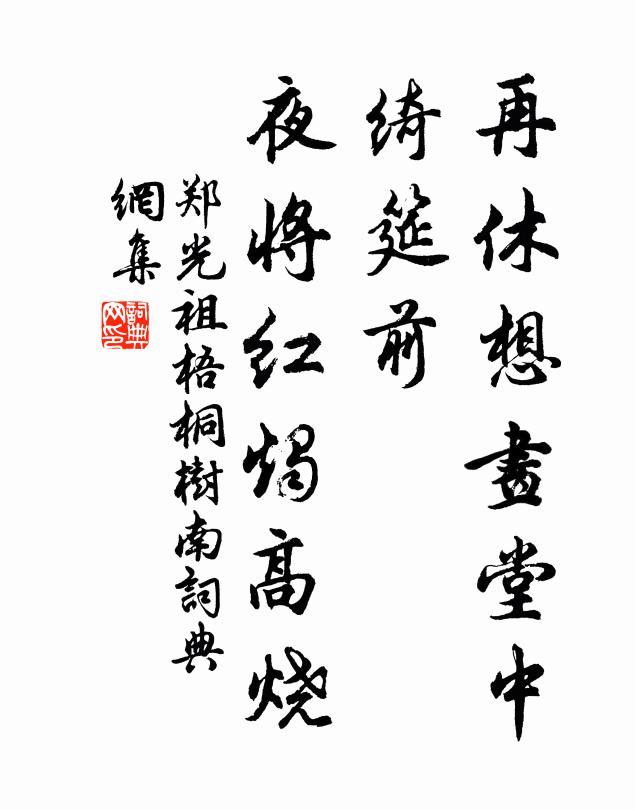 再休想畫堂中
綺筵前
夜將红燭高烧
郑光祖梧桐樹南詞典
網集
詞典
网印